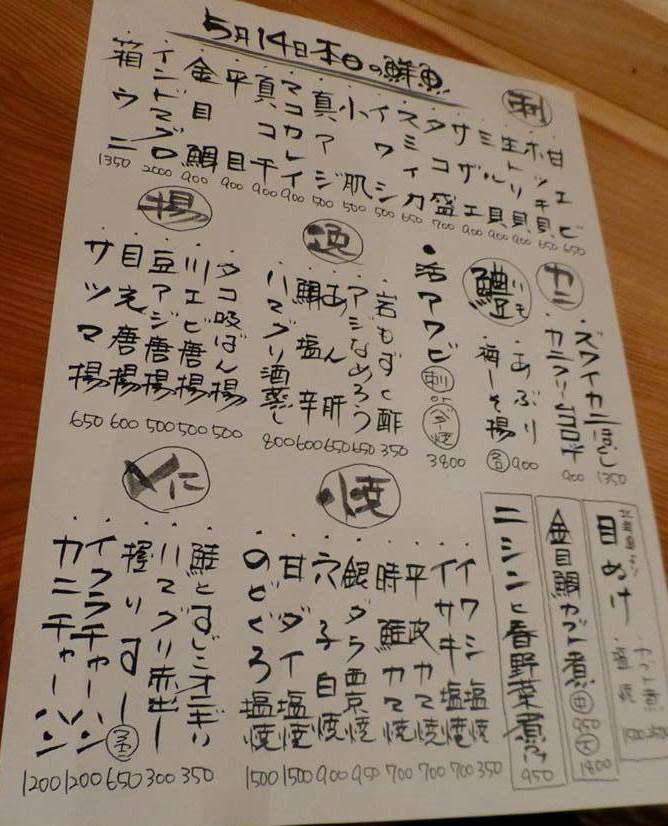 5月14日本日の鮮魚
刺
・甘エビ 650
・ホッキ貝 650
・生トリ貝 900
・ミル貝 900
・サザエ 900
・タコ盛 700
・スミイカ 650
・イワシ 500
・小肌 500
・真アジ 500
・マコカレイ 900
・真コチ 900
・平目 900
・金目鯛 900
・インドマグロ 2000
・箱ウニ 1350
カニ
・ズワイカニほぐし 1350
・カニクリームコロッケ 900
鱧
・あぶり
・梅しそ揚 各900
・活アワビ 刺 or バター焼 3800
酒
・岩もずく酢 350
・アジなめろう 650
・あん肝 650
・鯛塩辛 600
・ハマグリ酒蒸し 800
揚
・タコ吸ばん揚 500
・川エビ唐揚 500
・豆アジ唐揚 500
・目光唐揚 600
・サツマ揚 650
目ぬけ
・カブト煮
・塩焼
金目鯛カブト煮 中950 大1800
ニシンと春野菜煮 950
焼
・イワシ塩焼 350
・イサキ塩焼 700
・平政カマ焼 700
・時鮭カマ焼 700
・銀ダラ西京焼 950
・穴子白焼 900
・甘ダイ塩焼 1500
・のどぐろ塩焼 1500
〆に
・鮭とすじこオニギリ 350
・ハマグリ赤出し 300
・握りすし 650
・イクラチャーハン 1200
・カニチャーハン 1200